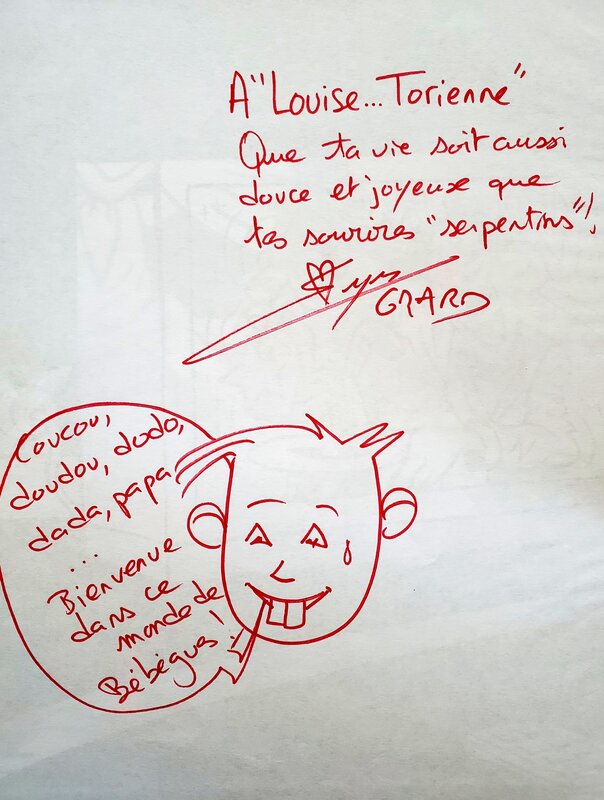 A "Louise... Torienne"
Que ta vie soit aussi
douce et joyeuse que
tes sourires "serpentins"!
GRARD
Coucou,
doudou, dodo,
dada, papa
...
Bienvenue
dans ce
monde de
Bébègues!